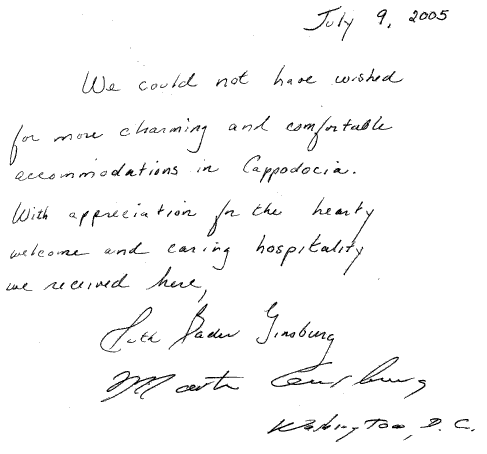 July 9, 2005
We could not have wished
for more charming and comfortable
accommodations in Cappodocia.
With appreciation for the hearty
welcome and caring hospitality
we received here,
Ruth Bader Ginsburg
Martin Ginsburg
Washington, D.C.